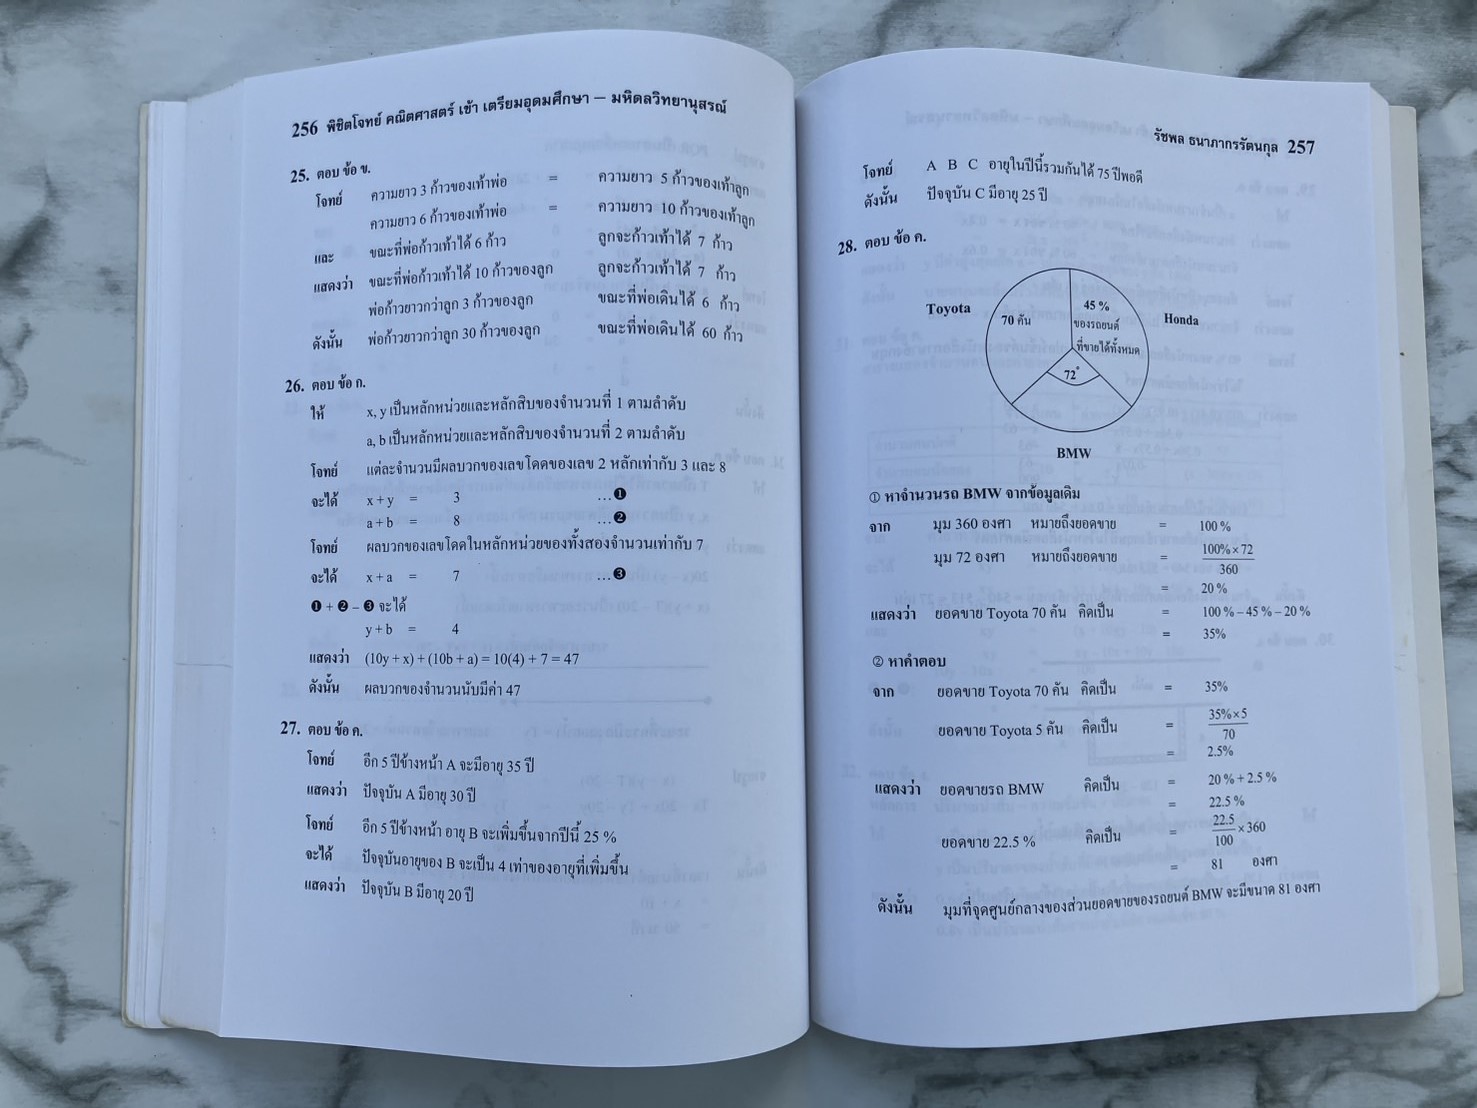 256 พิชิตโจทย์ คณิตศาสตร์ เข้า เตรียมอุดมศึกษา – มหิดลวิทยานุสรณ์
25. ตอบ ข้อ ข.
โจทย์ ความยาว 3 ก้าวของเท้าพ่อ = ความยาว 5 ก้าวของเท้าลูก
ความยาว 6 ก้าวของเท้าพ่อ = ความยาว 10 ก้าวของเท้าลูก
และ ขณะที่พ่อก้าวเท้าได้ 6 ก้าว ลูกจะก้าวเท้าได้ 7 ก้าว
แสดงว่า ขณะที่พ่อก้าวเท้าได้ 10 ก้าวของลูก ลูกจะก้าวเท้าได้ 7 ก้าว
พ่อก้าวยาวกว่าลูก 3 ก้าวของลูก ขณะที่พ่อเดินได้ 6 ก้าว
ดังนั้น พ่อก้าวยาวกว่าลูก 30 ก้าวของลูก ขณะที่พ่อเดินได้ 60 ก้าว
26. ตอบ ข้อ ก.
ให้ x, y เป็นหลักหน่วยและหลักสิบของจำนวนที่ 1 ตามลำดับ
a, b เป็นหลักหน่วยและหลักสิบของจำนวนที่ 2 ตามลำดับ
โจทย์ แต่ละจำนวนมีผลบวกของเลขโดดของเลข 2 หลักเท่ากับ 3 และ 8
จะได้ x + y = 3 ...❶
a + b = 8 ...❷
โจทย์ ผลบวกของเลขโดดในหลักหน่วยของทั้งสองจำนวนเท่ากับ 7
จะได้ x + a = 7 ...❸
❶ + ❷ – ❸ จะได้
y + b = 4
แสดงว่า (10y + x) + (10b + a) = 10(4) + 7 = 47
ดังนั้น ผลบวกของจำนวนนับมีค่า 47
27. ตอบ ข้อ ค.
โจทย์ อีก 5 ปีข้างหน้า A จะมีอายุ 35 ปี
แสดงว่า ปัจจุบัน A มีอายุ 30 ปี
โจทย์ อีก 5 ปีข้างหน้า อายุ B จะเพิ่มขึ้นจากปีนี้ 25 %
จะได้ ปัจจุบันอายุของ B จะเป็น 4 เท่าของอายุที่เพิ่มขึ้น
แสดงว่า ปัจจุบัน B มีอายุ 20 ปี
รัชพล ธนาภากรรัตนกุล 257
โจทย์ A B C อายุในปีนี้รวมกันได้ 75 ปีพอดี
ดังนั้น ปัจจุบัน C มีอายุ 25 ปี
28. ตอบ ข้อ ค.
Toyota
70 คัน
45 %
ของรถยนต์
ที่ขายได้ทั้งหมด
Honda
72°
BMW
① หาจำนวนรถ BMW จากข้อมูลเดิม
จาก มุม 360 องศา หมายถึงยอดขาย = 100 %
มุม 72 องศา หมายถึงยอดขาย = 100% × 72
360
= 20 %
แสดงว่า ยอดขาย Toyota 70 คัน คิดเป็น = 100 % – 45 % – 20 %
= 35%
② หาคำตอบ
จาก ยอดขาย Toyota 70 คัน คิดเป็น = 35%
ยอดขาย Toyota 5 คัน คิดเป็น = 35% × 5
70
= 2.5%
แสดงว่า ยอดขายรถ BMW คิดเป็น = 20 % + 2.5 %
= 22.5 %
ยอดขาย 22.5 % คิดเป็น = 22.5
100 × 360
= 81 องศา
ดังนั้น มุมที่จุดศูนย์กลางของส่วนยอดขายของรถยนต์ BMW จะมีขนาด 81 องศา